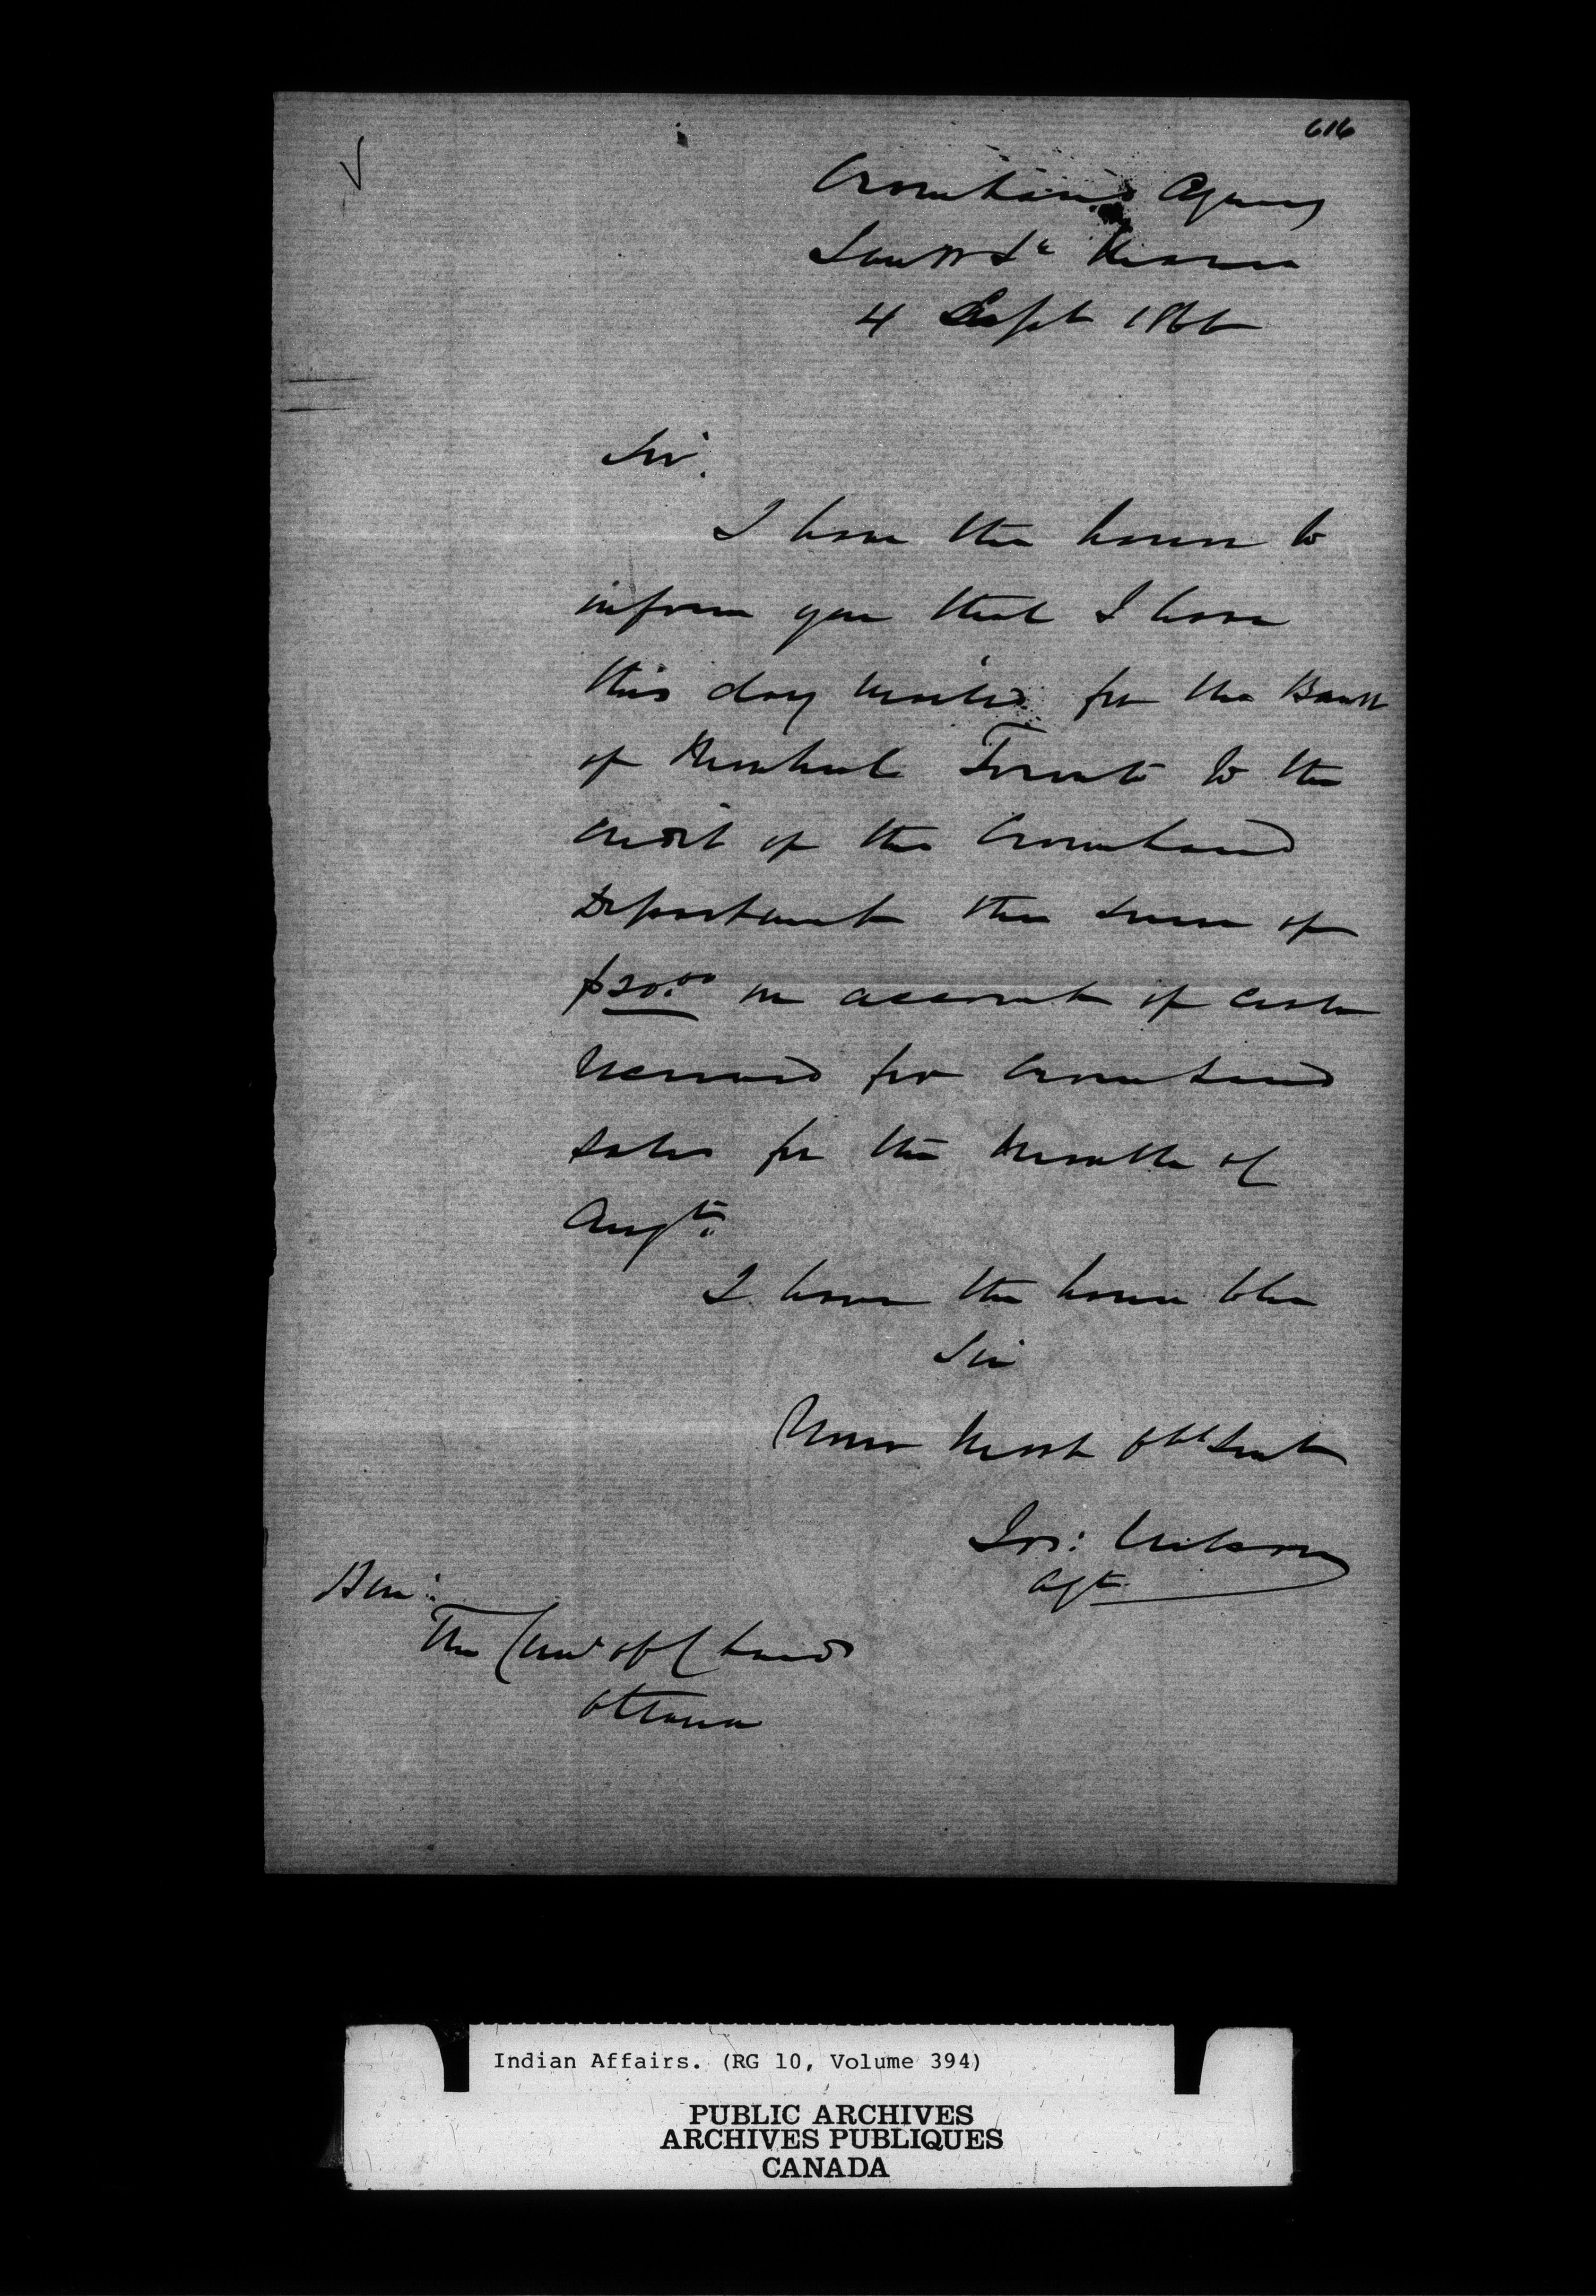 616
Crown Land Agency
Sault Ste Marie
4 Sept 1866
Sir.
I have the honor to
inform you that I have
this day remitted for the Bank
of Montreal Toronto to the
credit of the Crown Land
Department the sum of
$20.00 on account of cash
received for Crown Land
sales for the Month of
Augt.
I have the honor to be
Sir
Your Most Obt Servt
Jos: Wilson
Agt
Hon:
The Com of C Lands
Ottawa
Indian Affairs. (RG 10, Volume 394)
PUBLIC ARCHIVES
ARCHIVES PUBLIQUES
CANADA